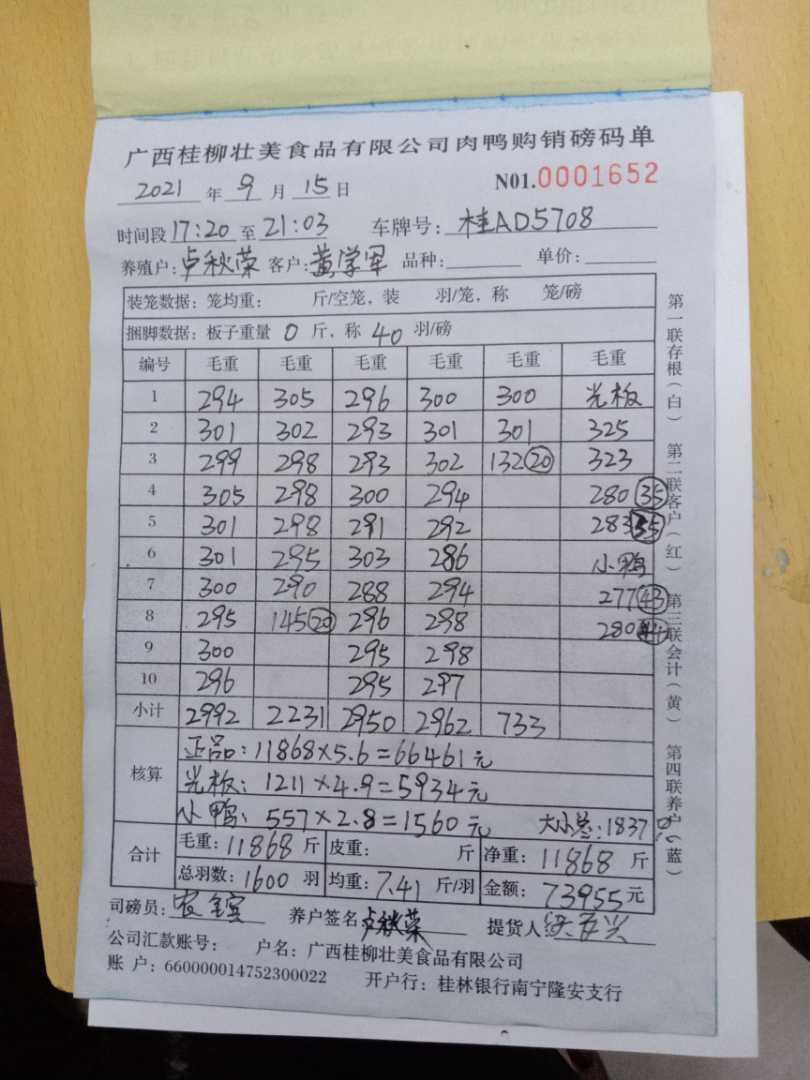 广西桂柳壮美食品有限公司肉鸭购销磅码单
2021 年 9 月 15 日 N01.0001652
时间段 17:20 至 21:03 车牌号: 桂AD5708
养殖户: 卢秋荣 客户: 黄学军 品种: 单价:
装笼数据: 笼均重: 斤/空笼, 装 羽/笼, 称 笼/磅
捆脚数据: 板子重量 0 斤, 称 40 羽/磅
编号 毛重 毛重 毛重 毛重 毛重 毛重
1 294 305 296 300 300 光板
2 301 302 293 301 301 325
3 299 298 293 302 132 20 323
4 305 298 300 294 280 35
5 301 298 291 292 283 35
6 301 295 303 286 小鸭
7 300 290 288 294 277 43
8 295 145 20 296 298 280 44
9 300 295 298
10 296 295 297
小计 2992 2231 2950 2962 733
核算
正品: 11868×5.6=66461元
光板: 1211×4.9=5934元
小鸭: 557×2.8=1560元 大小总: 1837
合计
毛重: 11868 斤 皮重: 斤 净重: 11868 斤
总羽数: 1600 羽 均重: 7.41 斤/羽 金额: 73955元
司磅员: 养户签名 卢秋荣 提货人
公司汇款账号: 户名: 广西桂柳壮美食品有限公司
账 户: 660000014752300022 开户行: 桂林银行南宁隆安支行
第一联存根(白) 第二联客户(红) 第三联会计(黄) 第四联养户(蓝)